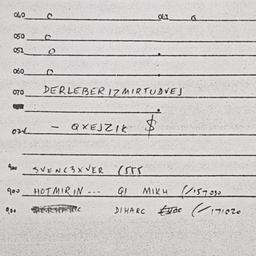 040 C 042 a
050 C
052 O .
060 O
070 DERLEBERIZMIRTUDVEJ
.
07d - QXEJZIK $
900 SVENC3XVER (555
900 HOTMIRIN --- GI MIKH (/157030
900 DIHARC (/171020